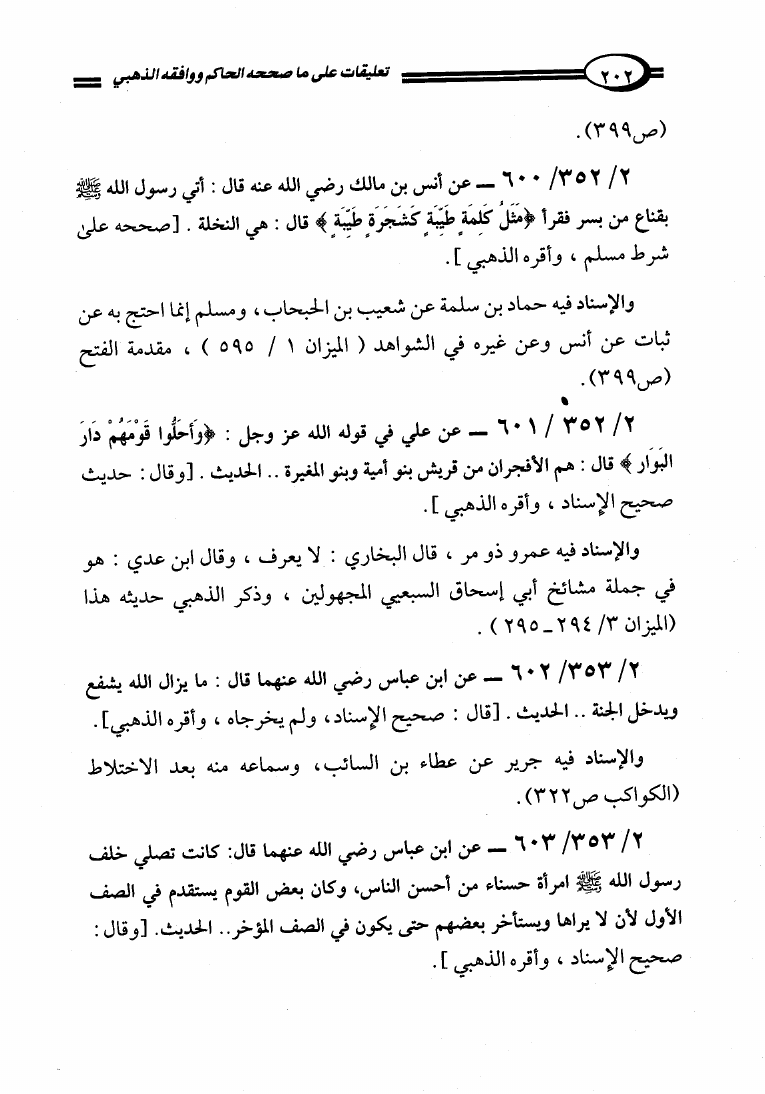 ٢٠٢ تعليقات على ما صححه الحاكم ووافقه الذهبي
(ص٣٩٩).
٢/ ٣٥٢/ ٦٠٠ ــ عن أنس بن مالك رضي الله عنه قال : أتي رسول الله ﷺ
بقناع من بسر فقرأ ﴿مَثَلُ كَلِمَةٍ طَيِّبَةٍ كَشَجَرَةٍ طَيِّبَةٍ﴾ قال : هي النخلة . [صححه علىٰ
شرط مسلم ، وأقره الذهبي ].
والإسناد فيه حماد بن سلمة عن شعيب بن الحبحاب، ومسلم إنما احتج به عن
ثبات عن أنس وعن غيره في الشواهد ( الميزان ١ / ٥٩٥ ) ، مقدمة الفتح
(ص٣٩٩).
٢/ ٣٥٢ / ٦٠١ ــ عن علي في قوله الله عز وجل : ﴿وَأَحَلُّوا قَوْمَهُمْ دَارَ
البَوَارِ﴾ قال : هم الأفجران من قريش بنو أمية وبنو المغيرة .. الحديث . [وقال : حديث
صحيح الإسناد ، وأقره الذهبي ].
والإسناد فيه عمرو ذو مر ، قال البخاري : لا يعرف ، وقال ابن عدي : هو
في جملة مشائخ أبي إسحاق السبعيي المجهولين ، وذكر الذهبي حديثه هذا
(الميزان ٣/ ٢٩٤ــ٢٩٥ ) .
٢/ ٣٥٣/ ٦٠٢ ــ عن ابن عباس رضي الله عنهما قال : ما يزال الله يشفع
ويدخل الجنة .. الحديث . [قال : صحيح الإسناد، ولم يخرجاه ، وأقره الذهبي].
والإسناد فيه جرير عن عطاء بن السائب، وسماعه منه بعد الاختلاط
(الكواكب ص٣٢٢).
٢/ ٣٥٣/ ٦٠٣ ــ عن ابن عباس رضي الله عنهما قال: كانت تصلي خلف
رسول الله ﷺ امرأة حسناء من أحسن الناس، وكان بعض القوم يستقدم في الصف
الأول لأن لا يراها ويستأخر بعضهم حتى يكون في الصف المؤخر.. الحديث. [وقال :
صحيح الإسناد ، وأقره الذهبي ].